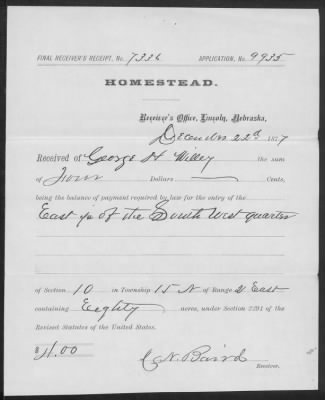 FINAL RECEIVER'S RECEIPT, No. 7336 APPLICATION, No. 9935
HOMESTEAD.
Receiver's Office, Lincoln, Nebraska,
December 22d 1877
Received of George H Willey the sum
of Four Dollars Cents,
being the balance of payment required by law for the entry of the
East ½ of the South West quarter
of Section 10 in Township 15 N of Range 2 East
containing Eighty acres, under Section 2291 of the
Revised Statutes of the United States.
$4.00
C. N. Baird
Receiver.